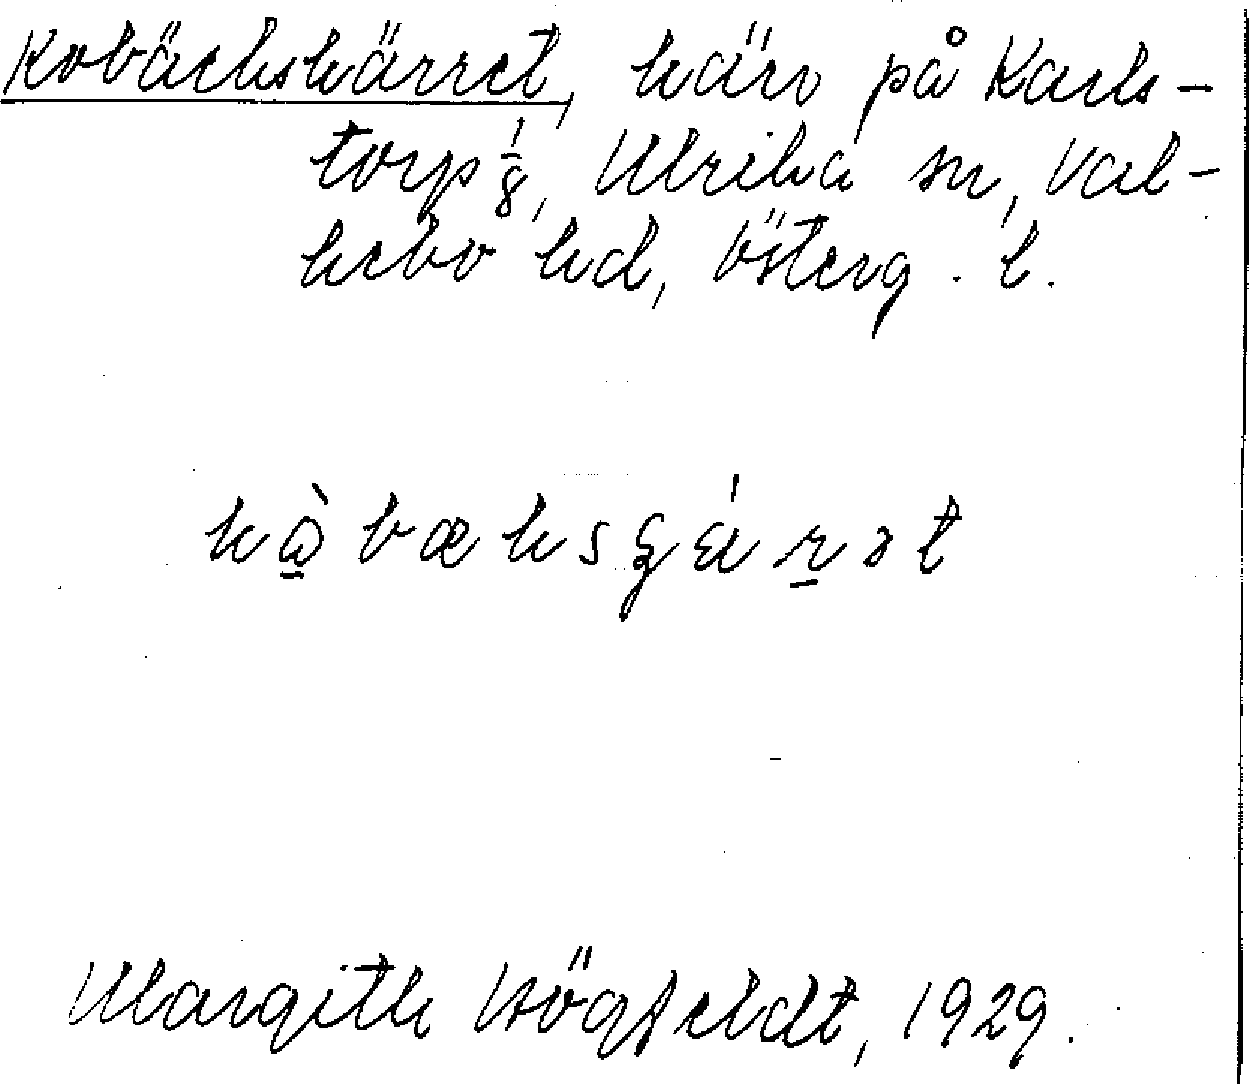 Kobäckskärret, kärr på Karls-
torp 1/8, Ulrika sn, Val-
kebo hd, Österg. l.
kåbæksʒǽrət
Margith Högfeldt, 1929.